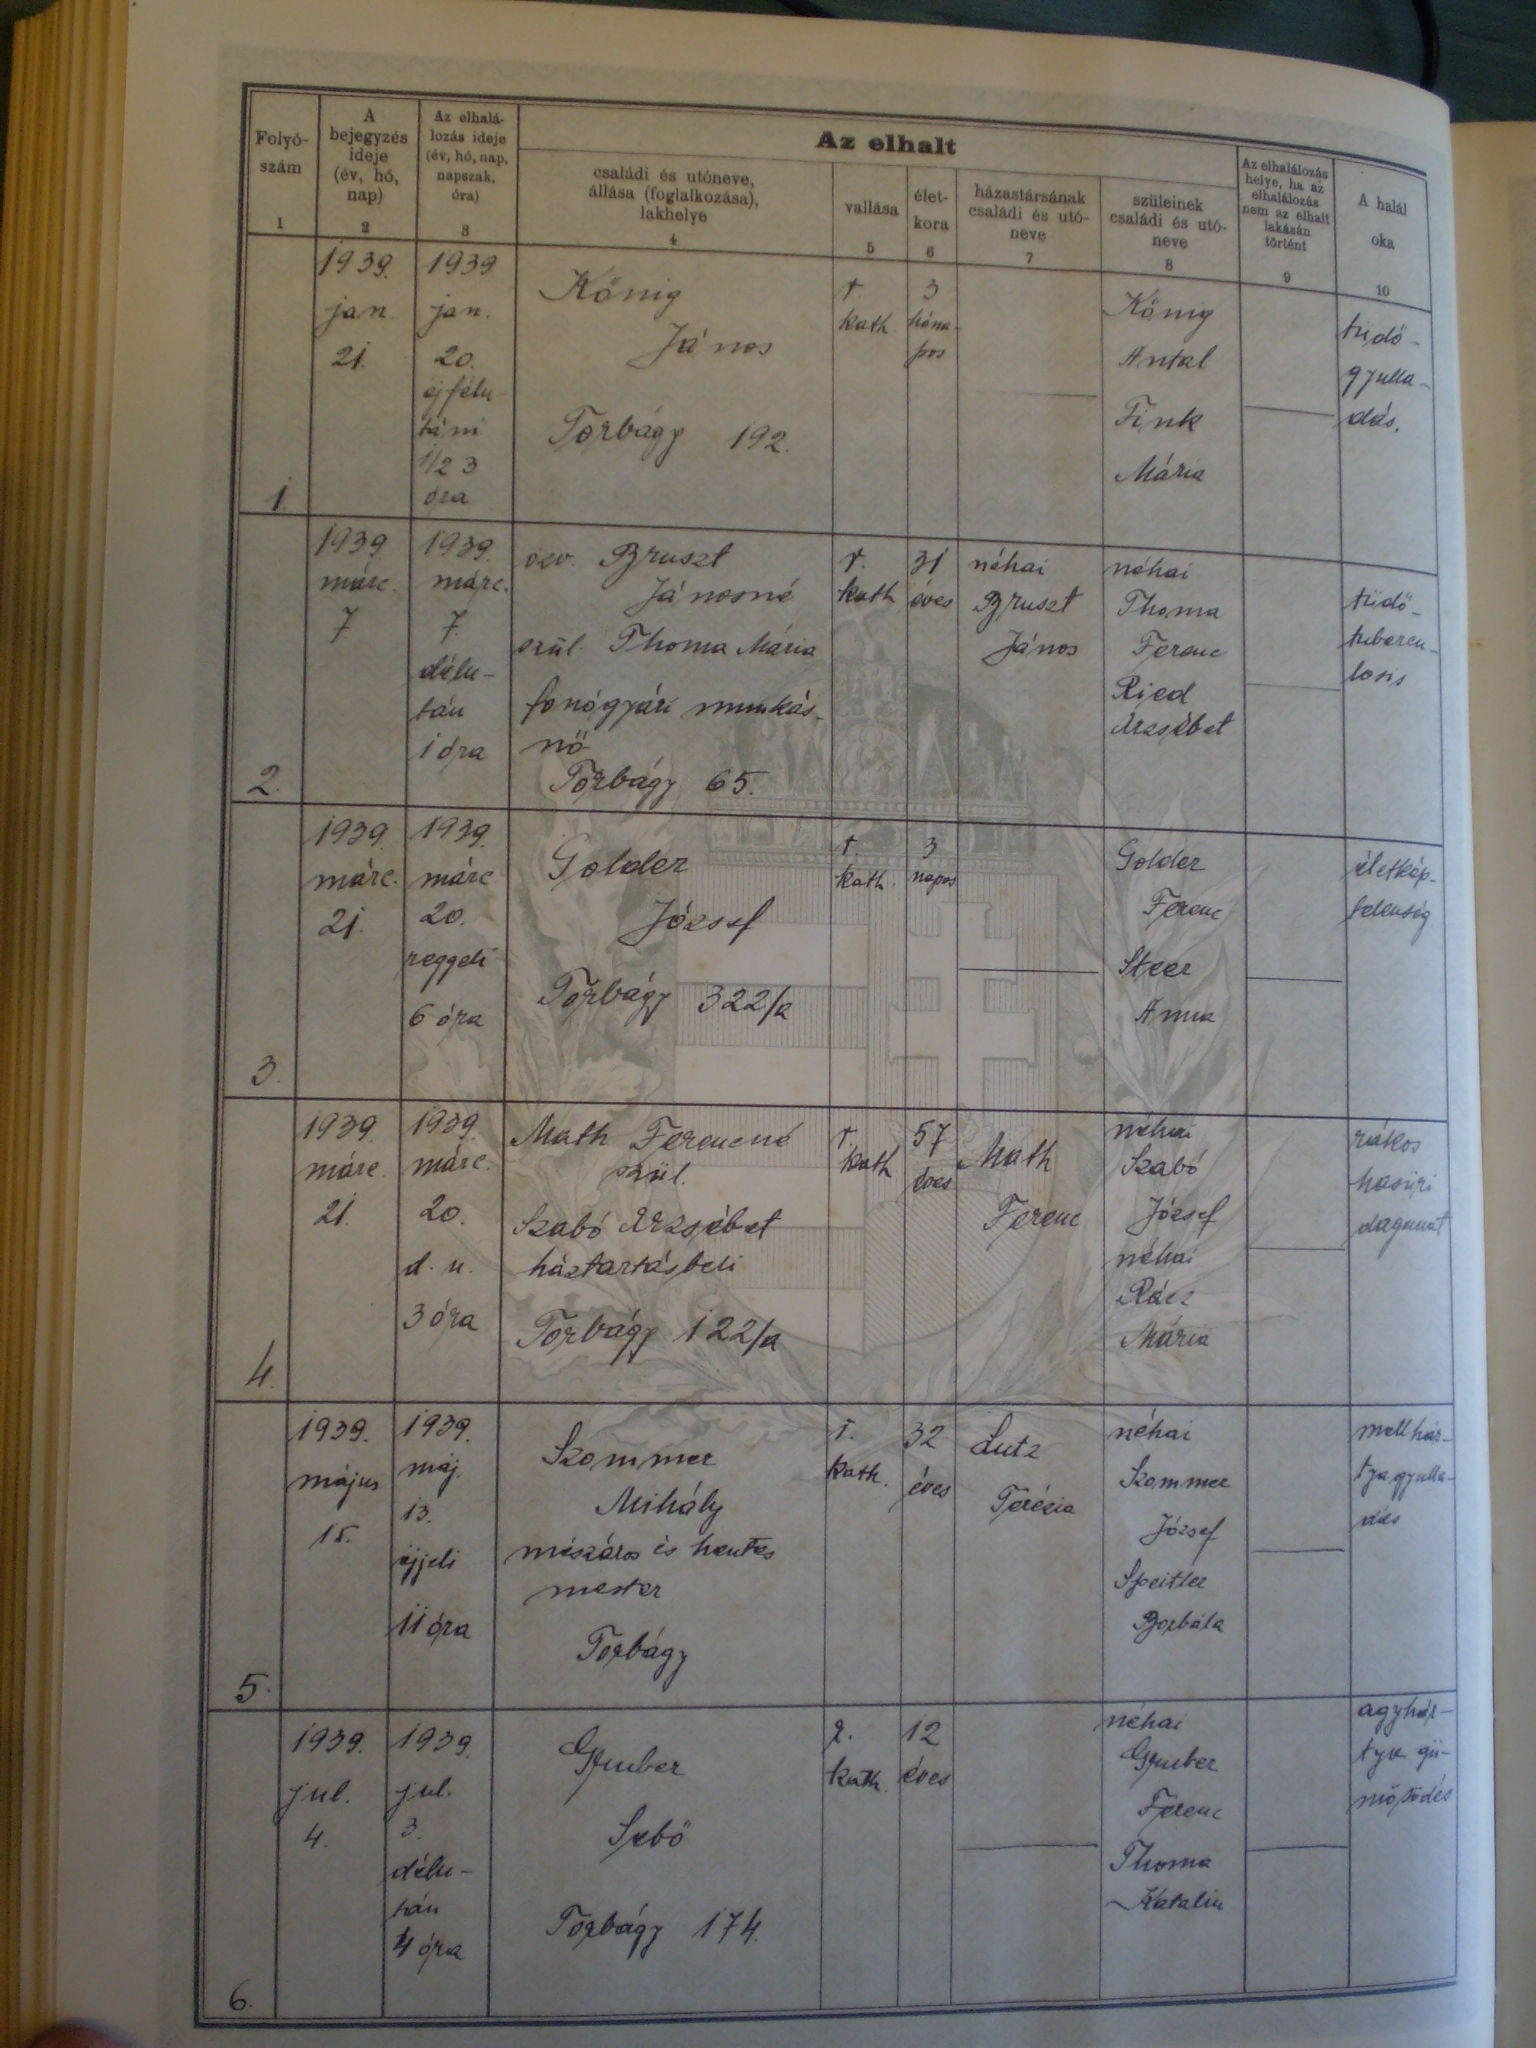 Folyó-
szám
1
A
bejegyzés
ideje
(év, hó,
nap)
2
Az elhalá-
lozás ideje
(év, hó, nap,
napszak,
óra)
3
Az elhalt
családi és utóneve,
állása (foglalkozása),
lakhelye
4
vallása
5
élet-
kora
6
házastársának
családi és utó-
neve
7
szüleinek
családi és utó-
neve
8
Az elhalálozás
helye, ha az
elhalálozás
nem az elhalt
lakásán
történt
9
A halál
oka
10
1.
1939.
jan.
21.
1939
jan.
20.
éjfélu-
táni
1/2 3
óra
Kőnig
János
Torbágy 192.
r.
kath.
3
hóna-
pos
Kőnig
Antal
Fink
Mária
tüdő-
gyulla-
dás.
2.
1939.
márc.
7
1939.
márc.
7.
délu-
tán
1 óra
özv. Bruszt
Jánosné
szül. Thoma Mária
fonógyári munkás-
nő
Torbágy 65.
r.
kath.
31
éves
néhai
Bruszt
János
néhai
Thoma
Ferenc
Ried
Erzsébet
tüdő-
tubercu-
losis
3.
1939.
márc.
21.
1939.
márc.
20.
reggeli
6 óra
Golder
József
Torbágy 322/a
r.
kath.
3
napos
Golder
Ferenc
Steer
Anna
életkép-
telenség
4.
1939.
márc.
21.
1939.
márc.
20.
d. u.
3 óra
Math Ferencné
szül.
Szabó Erzsébet
háztartásbeli
Torbágy 122/a
r.
kath
57
éves
Math
Ferenc
néhai
Szabó
József
néhai
Rácz
Mária
rákos
hasűri
daganat
5.
1939.
május
15.
1939.
máj.
13.
éjjeli
11 óra
Szommer
Mihály
mészáros és hentes
mester
Torbágy
r.
kath.
32
éves
Lutz
Terézia
néhai
Szommer
József
Speitler
Borbála
mellhár-
tyagyulla-
dás
6.
1939.
jul.
4.
1939.
jul.
3.
délu-
tán
4 óra
Gruber
Sebő
Torbágy 174.
r.
kath.
12
éves
néhai
Gruber
Ferenc
Thoma
Katalin
agyhár-
tya gü-
mősödés